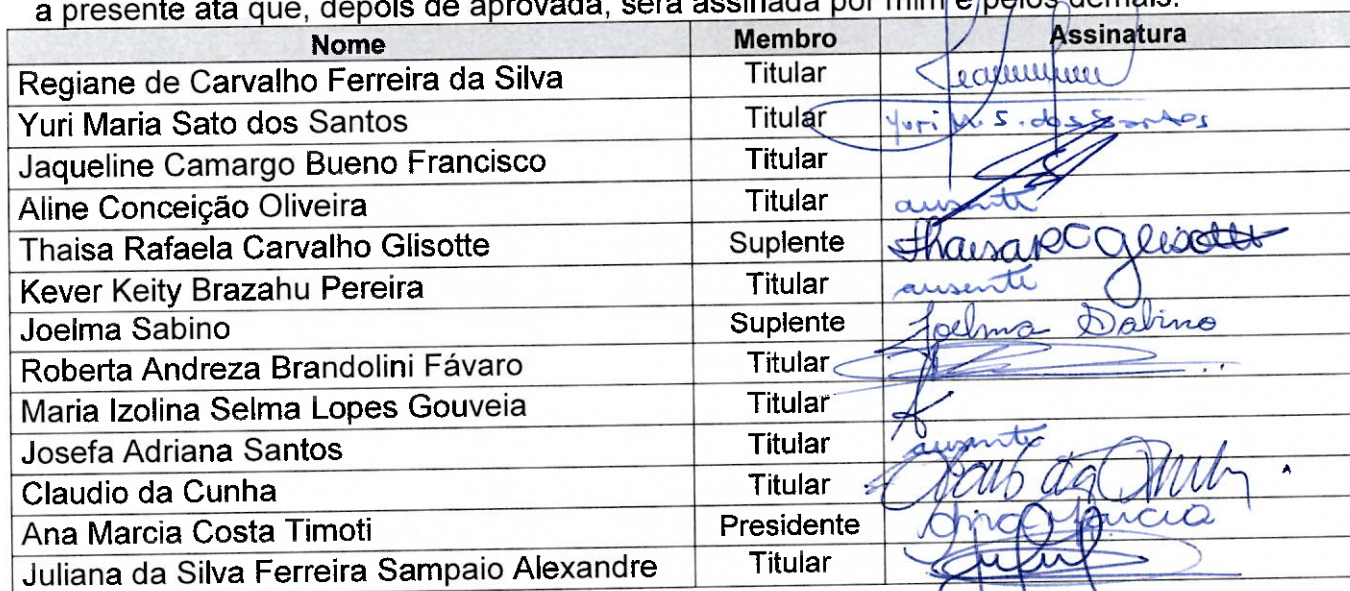 a presente ata que, depois de aprovada, será assinada por mim e pelos demais.
Nome Membro Assinatura
Regiane de Carvalho Ferreira da Silva Titular
Yuri Maria Sato dos Santos Titular Yuri M. S. dos Santos
Jaqueline Camargo Bueno Francisco Titular
Aline Conceição Oliveira Titular ausente
Thaisa Rafaela Carvalho Glisotte Suplente Thaisa RC Glisotte
Kever Keity Brazahu Pereira Titular ausente
Joelma Sabino Suplente Joelma Sabino
Roberta Andreza Brandolini Fávaro Titular
Maria Izolina Selma Lopes Gouveia Titular
Josefa Adriana Santos Titular ausente
Claudio da Cunha Titular
Ana Marcia Costa Timoti Presidente Ana Marcia
Juliana da Silva Ferreira Sampaio Alexandre Titular